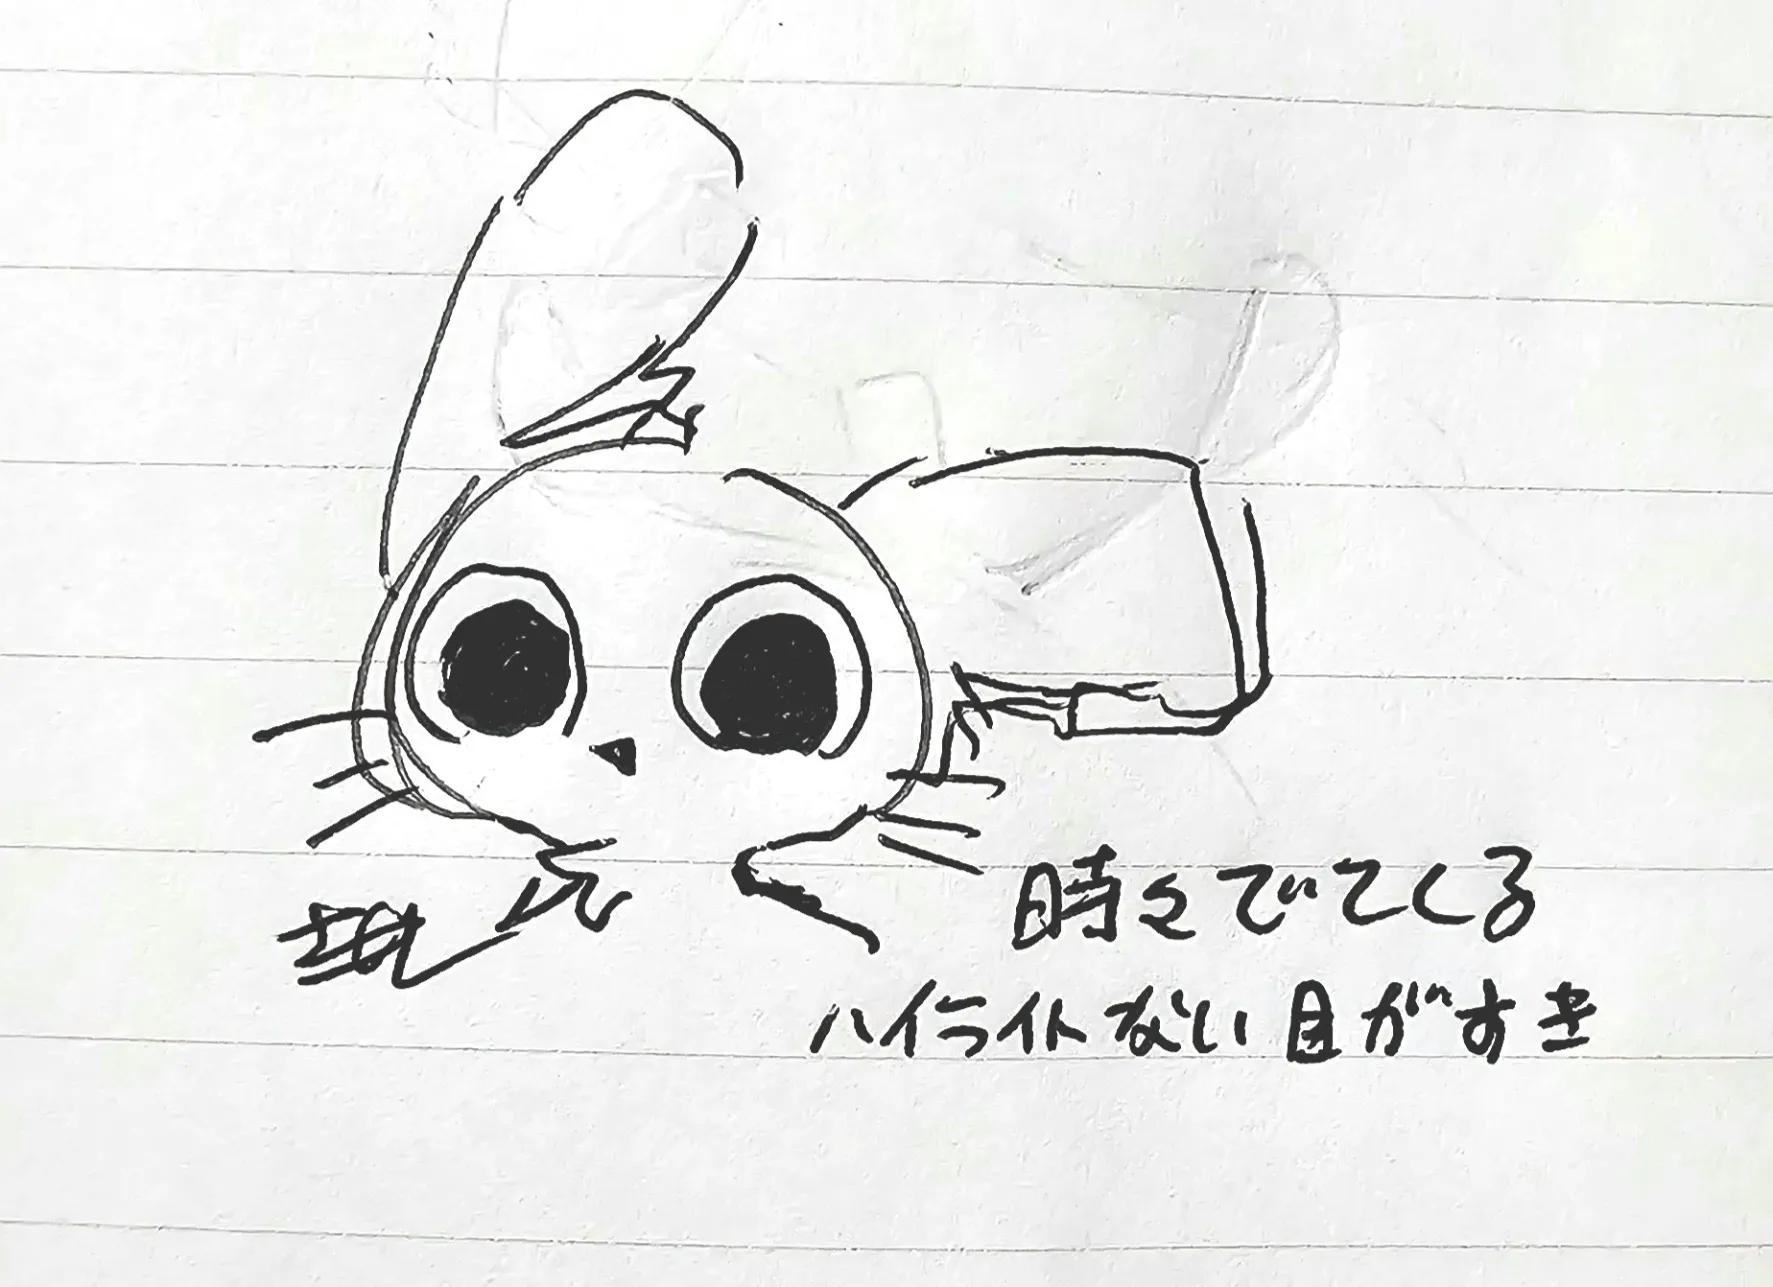 時々でてくる
ハイライトない目がすき